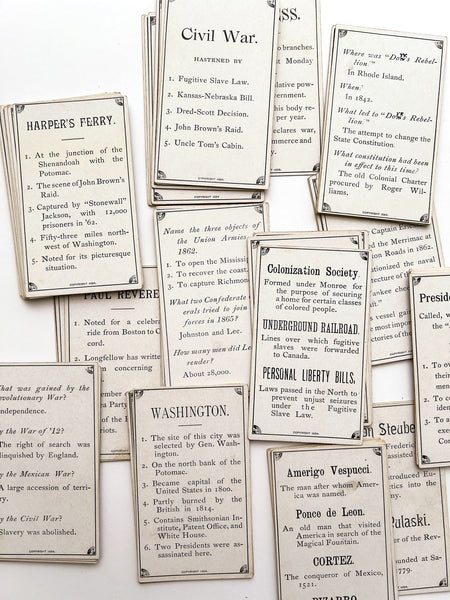 Civil War.
HASTENED BY
1. Fugitive Slave Law.
2. Kansas-Nebraska Bill.
3. Dred-Scott Decision.
4. John Brown's Raid.
5. Uncle Tom's Cabin.
SS.
branches.
st Monday
slative pow-
ernment.
his body re-
per year.
eclares war,
merce and
Where was "Dorr's Rebel-
lion."
In Rhode Island.
When?
In 1842.
What led to "Dorr's Rebel-
lion."
The attempt to change the
State Constitution.
What constitution had been
in effect to this time?
The old Colonial Charter
procured by Roger Wil-
liams.
HARPER'S FERRY.
1. At the junction of the
Shenandoah with the
Potomac.
2. The scene of John Brown's
Raid.
3. Captured by "Stonewall"
Jackson, with 12,000
prisoners in '62.
4. Fifty-three miles north-
west of Washington.
5. Noted for its picturesque
situation.
COPYRIGHT 1894.
Name the three objects of
the Union Armies
1862.
1. To open the Mississip
2. To recover the coast.
3. To capture Richmon
What two Confederate
erals tried to join
forces in 1865?
Johnston and Lee.
How many men did Le
render?
About 28,000.
Captain Eric
the Merrimac at
Roads in 1862.
tionized the naval
vessel gai
most impor
ctories of the
PAUL REVERE
1. Noted for a celebra
ride from Boston to C
cord.
2. Longfellow has writte
concerning
Colonization Society.
Formed under Monroe for
the purpose of securing
a home for certain classes
of colored people.
UNDERGROUND RAILROAD.
Lines over which fugitive
slaves were forwarded
to Canada.
PERSONAL LIBERTY BILLS,
Laws passed in the North to
prevent unjust seizures
under the Fugitive
Slave Law.
COPYRIGHT 1894.
President
Called, w
the
1. To o
their
men
2. To co
3. To c
sect
What was gained by the
Revolutionary War?
Independence.
By the War of '12?
The right of search was
relinquished by England.
By the Mexican War?
A large accession of terri-
ry.
By the Civil War?
Slavery was abolished.
COPYRIGHT 1894.
WASHINGTON.
1. The site of this city was
selected by Gen. Wash-
ington.
2. On the north bank of the
Potomac.
3. Became capital of the
United States in 1800.
4. Partly burned by the
British in 1814.
5. Contains Smithsonian In-
stitute, Patent Office, and
White House.
6. Two Presidents were as-
sassinated here.
COPYRIGHT 1894.
Amerigo Vespucci.
The man after whom Amer-
ica was named.
Ponce de Leon.
An old man that visited
America in search of the
Magical Fountain.
CORTEZ.
The conqueror of Mexico,
1521.
PIZARRO
on Steube
Frederic
assisted
troduced Eu
tics into the
Pulaski.
er of the Rev-
ounded at Sa-
1779.
COPYRIGHT 1894.